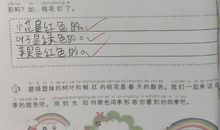 彩吗？如，桃花红了。
花是红色的。
叶子是绿色的。
苹果是红色的。
碧绿碧绿的树叶和鲜红的桃花是春天的颜色。我们一起来读
季的颜色吧。用到生动的颜色词来形容你看到的四季吧。